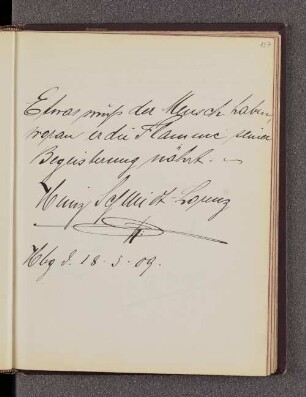 157
Etwas muß der Mensch haben,
woran er die Flamme seiner
Begeisterung nährt. –
Heinz Schmidt-Lorenz
Hbg d. 18.3.09.